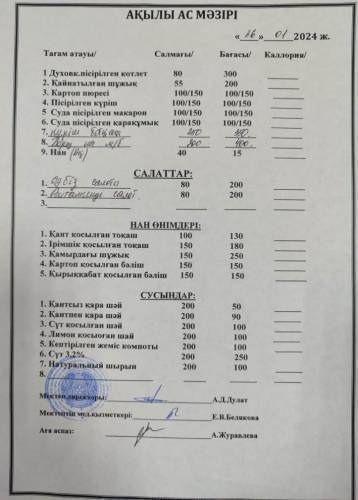 АҚЫЛЫ АС МӘЗІРІ
« 26 » 01 2024 ж.
Тағам атауы/ Салмағы/ Бағасы/ Каллория/
1 Духовк.пісірілген котлет 80 300
2. Қайнатылған шұжық 55 200
3. Картоп пюресі 100/150 100/150
4. Пісірілген күріш 100/150 100/150
5 Суда пісірілген макарон 100/150 100/150
6. Суда пісірілген қарақұмық 100/150 100/150
7. 200
8. 200 400
9. Нан 40 15
САЛАТТАР:
1. салаты 80 200
2. салат 80 200
3.
НАН ӨНІМДЕРІ:
1. Қант қосылған тоқаш 100 130
2. Ірімшік қосылған тоқаш 150 180
3. Қамырдағы шұжық 150 250
4. Картоп қосылған бәліш 150 150
5. Қырыққабат қосылған бәліш 150 150
СУСЫНДАР:
1. Қантсыз қара шай 200 50
2. Қантпен қара шай 200 90
3. Сүт қосылған шай 200 100
4. Лимон қосыоған шай 200 100
5. Кептірілген жеміс компоты 200 100
6. Сүт 3,2% 200 250
7. Натуральный шырын 200 100
8.
Мектеп директоры: А.Д.Дулат
Мектептің мед.қызметкері: Е.В.Белякова
Аға аспаз: А.Журавлева